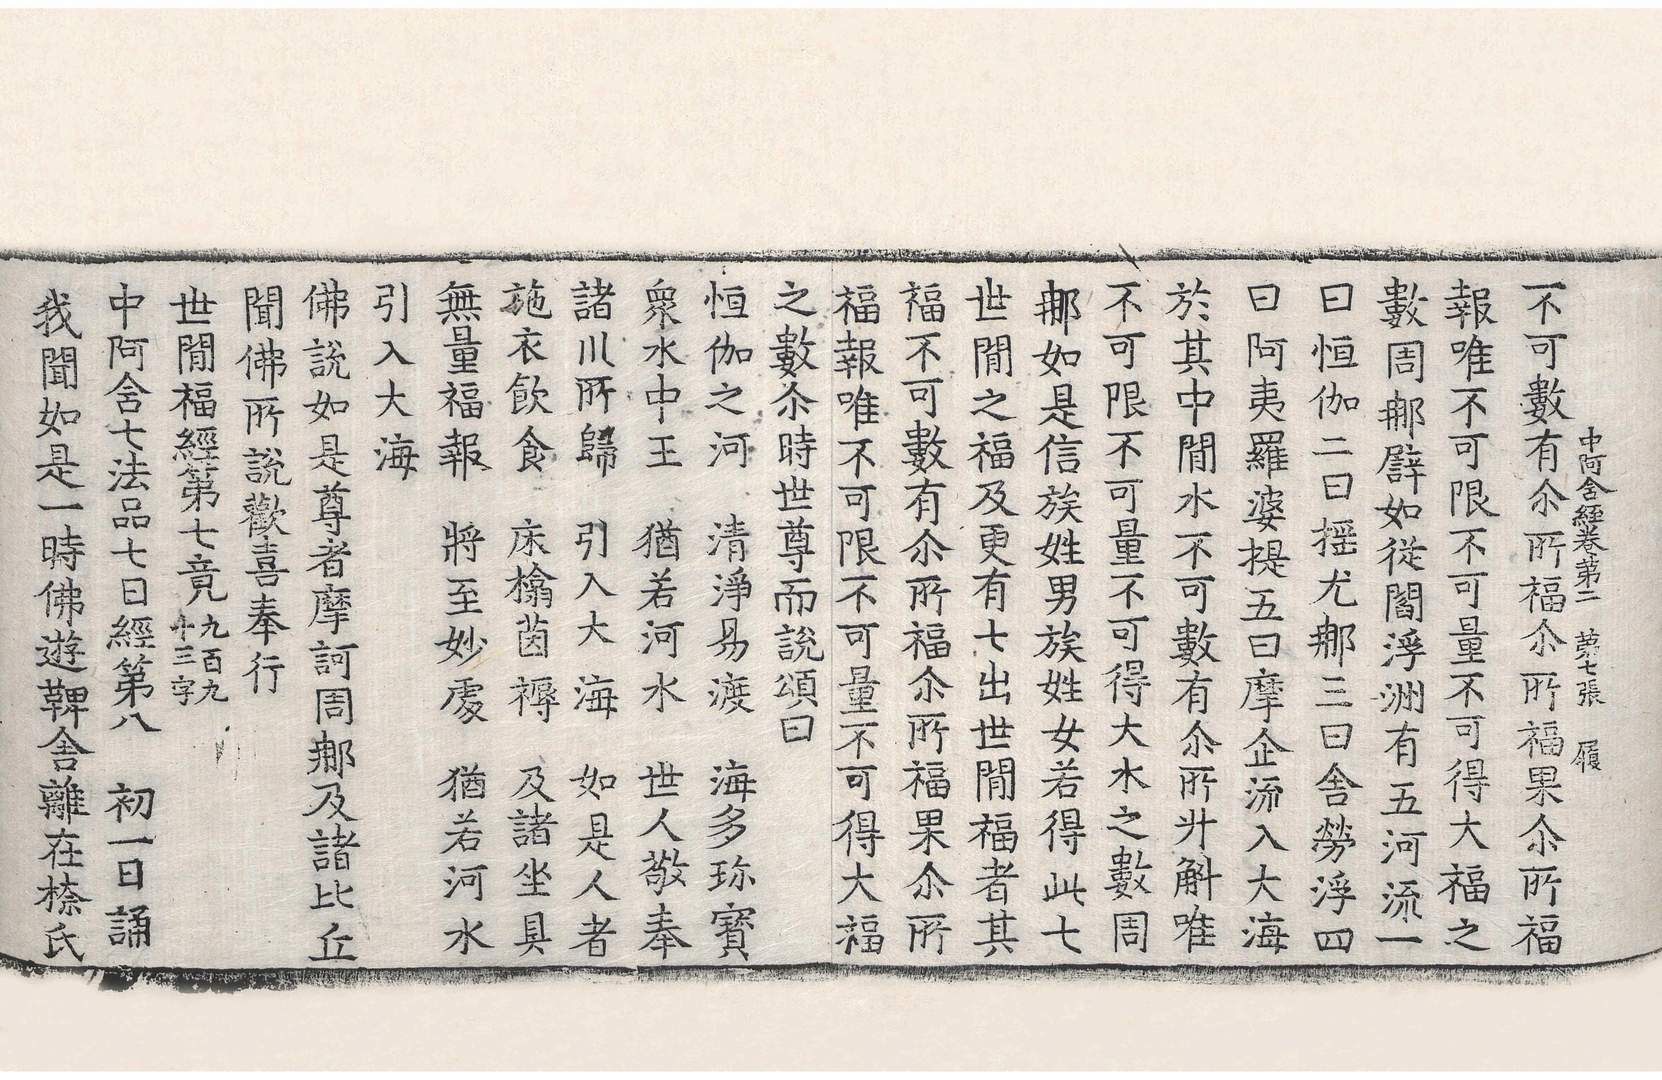 中阿含經卷第二　第七張　履
不可數有尒所福尒所福果尒所福
報唯不可限不可量不可得大福之
數周那譬如從閻浮洲有五河流一
曰恒伽二曰搖尤那三曰舍勞浮四
曰阿夷羅婆提五曰摩企流入大海
於其中閒水不可數有尒所升斛唯
不可限不可量不可得大水之數周
那如是信族姓男族姓女若得此七
世閒之福及更有七出世閒福者其
福不可數有尒所福尒所福果尒所
福報唯不可限不可量不可得大福
之數尒時世尊而說頌曰
恒伽之河　清淨易渡　海多珎寶
衆水中王　猶若河水　世人敬奉
諸川所歸　引入大海　如是人者
施衣飲食　床榻茵褥　及諸坐具
無量福報　將至妙處　猶若河水
引入大海
佛說如是尊者摩訶周那及諸比丘
聞佛所說歡喜奉行
世閒福經第七竟九百九十三字
中阿含七法品七日經第八　初一日誦
我聞如是一時佛遊鞞舍離在㮈氏